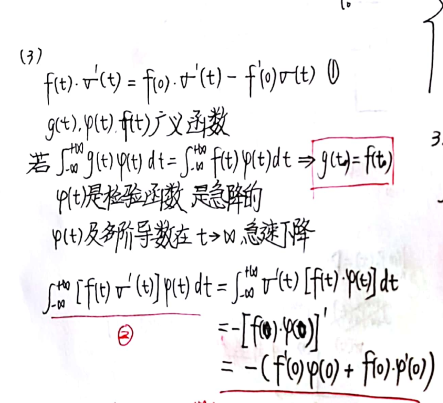 (3)
f(t)·σ'(t) = f(0)·σ'(t) - f'(0)σ(t) ①
g(t), φ(t) f(t) 广义函数
若 ∫_{-∞}^{+∞} g(t)φ(t) dt = ∫_{-∞}^{+∞} f(t)φ(t)dt ⇒ g(t) = f(t)
φ(t)是检验函数 是急降的
φ(t)及各阶导数在 t→∞ 急速下降
∫_{-∞}^{+∞} [f(t) σ'(t)]φ(t) dt = ∫_{-∞}^{+∞} σ'(t) [f(t)·φ(t)] dt
②
= -[f(0)·φ(0)]'
= -(f'(0)φ(0) + f(0)·φ'(0))
3.